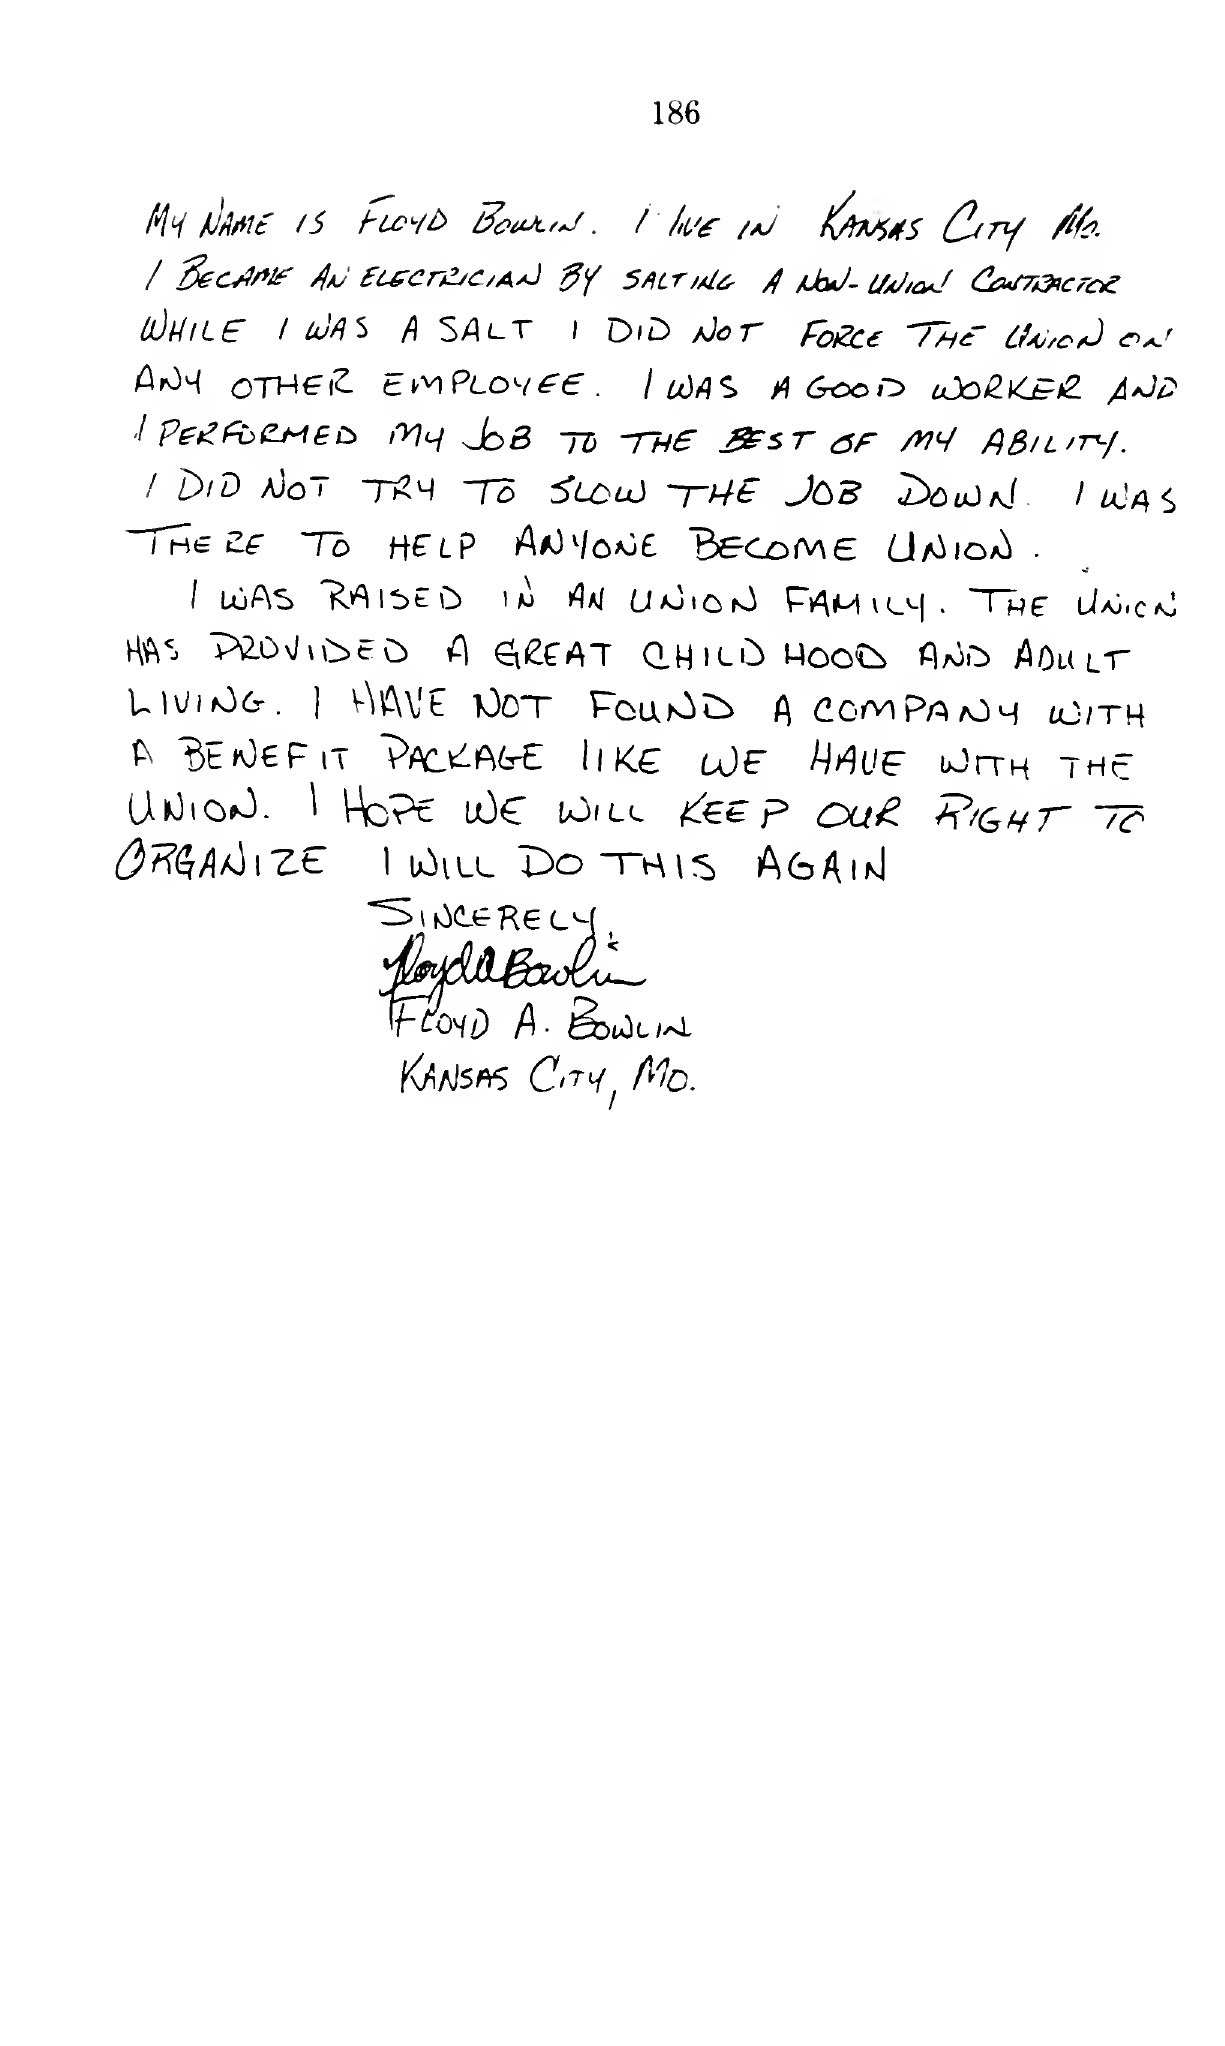 186
My Name is Floyd Bowlin. I live in Kansas City Mo.
I Became An electrician By salting a non-union Contractor
While I was a salt I did not force the Union on
any other employee. I was a good worker and
I performed my job to the best of my ability.
I did not try to slow the job down. I was
there to help anyone become union.
I was raised in an union family. The union
has provided a great child hood and adult
living. I have not found a company with
a benefit package like we have with the
union. I hope we will keep our right to
organize I will do this again
Sincerely,
Floyd A Bowlin
Floyd A. Bowlin
Kansas City, Mo.